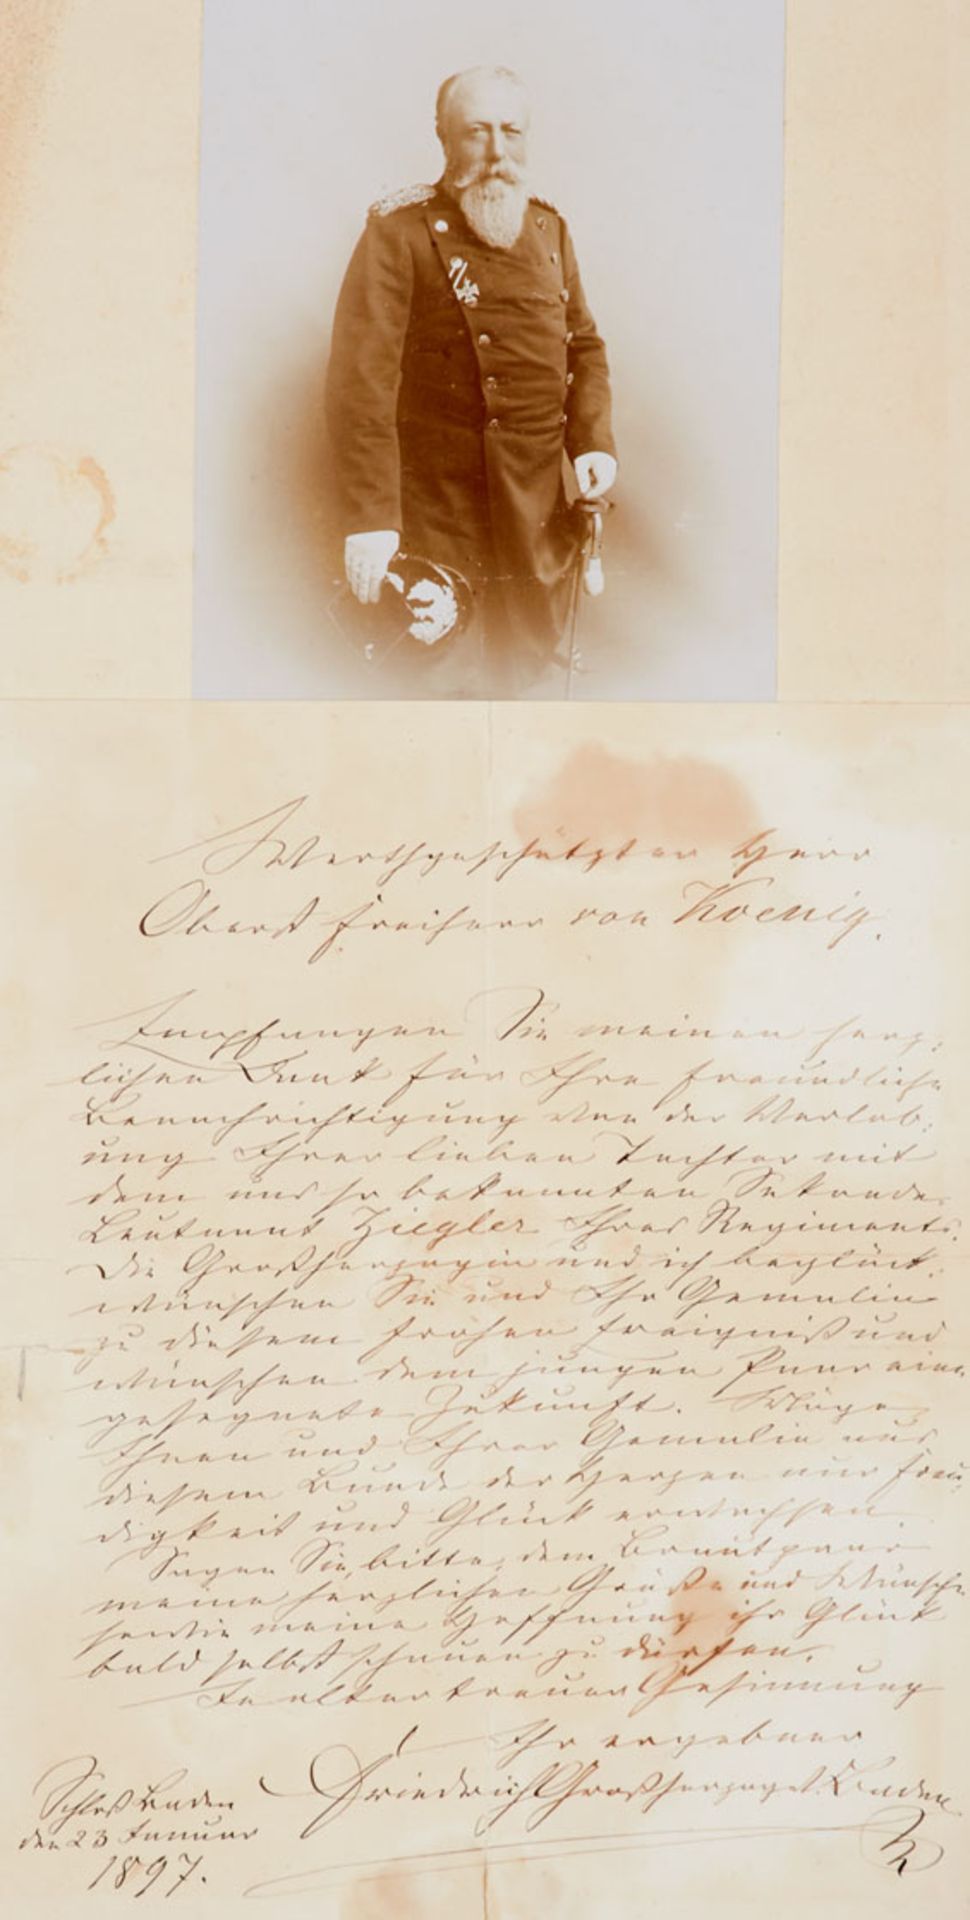 Werthgeschätzter Herr
Oberst Freiherr von Koenig.
Empfangen Sie meinen herz:
lichen Dank für Ihre freundliche
Benachrichtigung von der Verlob:
ung Ihrer lieben Tochter mit
dem uns so bekannten Sekonde
Leutnant Ziegler Ihres Regiments.
Die Großherzogin und ich beglück:
wünschen Sie und Ihr Gemalin
zu diesem frohen Ereigniß und
wünschen dem jungen Paar eine
gesegnete Zukunft. Möge
Ihnen und Ihrer Gemalin aus
diesem Bunde der Herzen nur Freu:
digkeit und Glück erwachsen.
Sagen Sie, bitte, dem Brautpaar
meine herzlichen Grüße und Wünsche
sowie meine Hoffnung ihr Glück
bald selbst schauen zu dürfen.
In alter treuer Gesinnung
Ihr ergebner
Friedrich Großherzog v. Baden
Schloß Baden
den 23 Januar
1897.